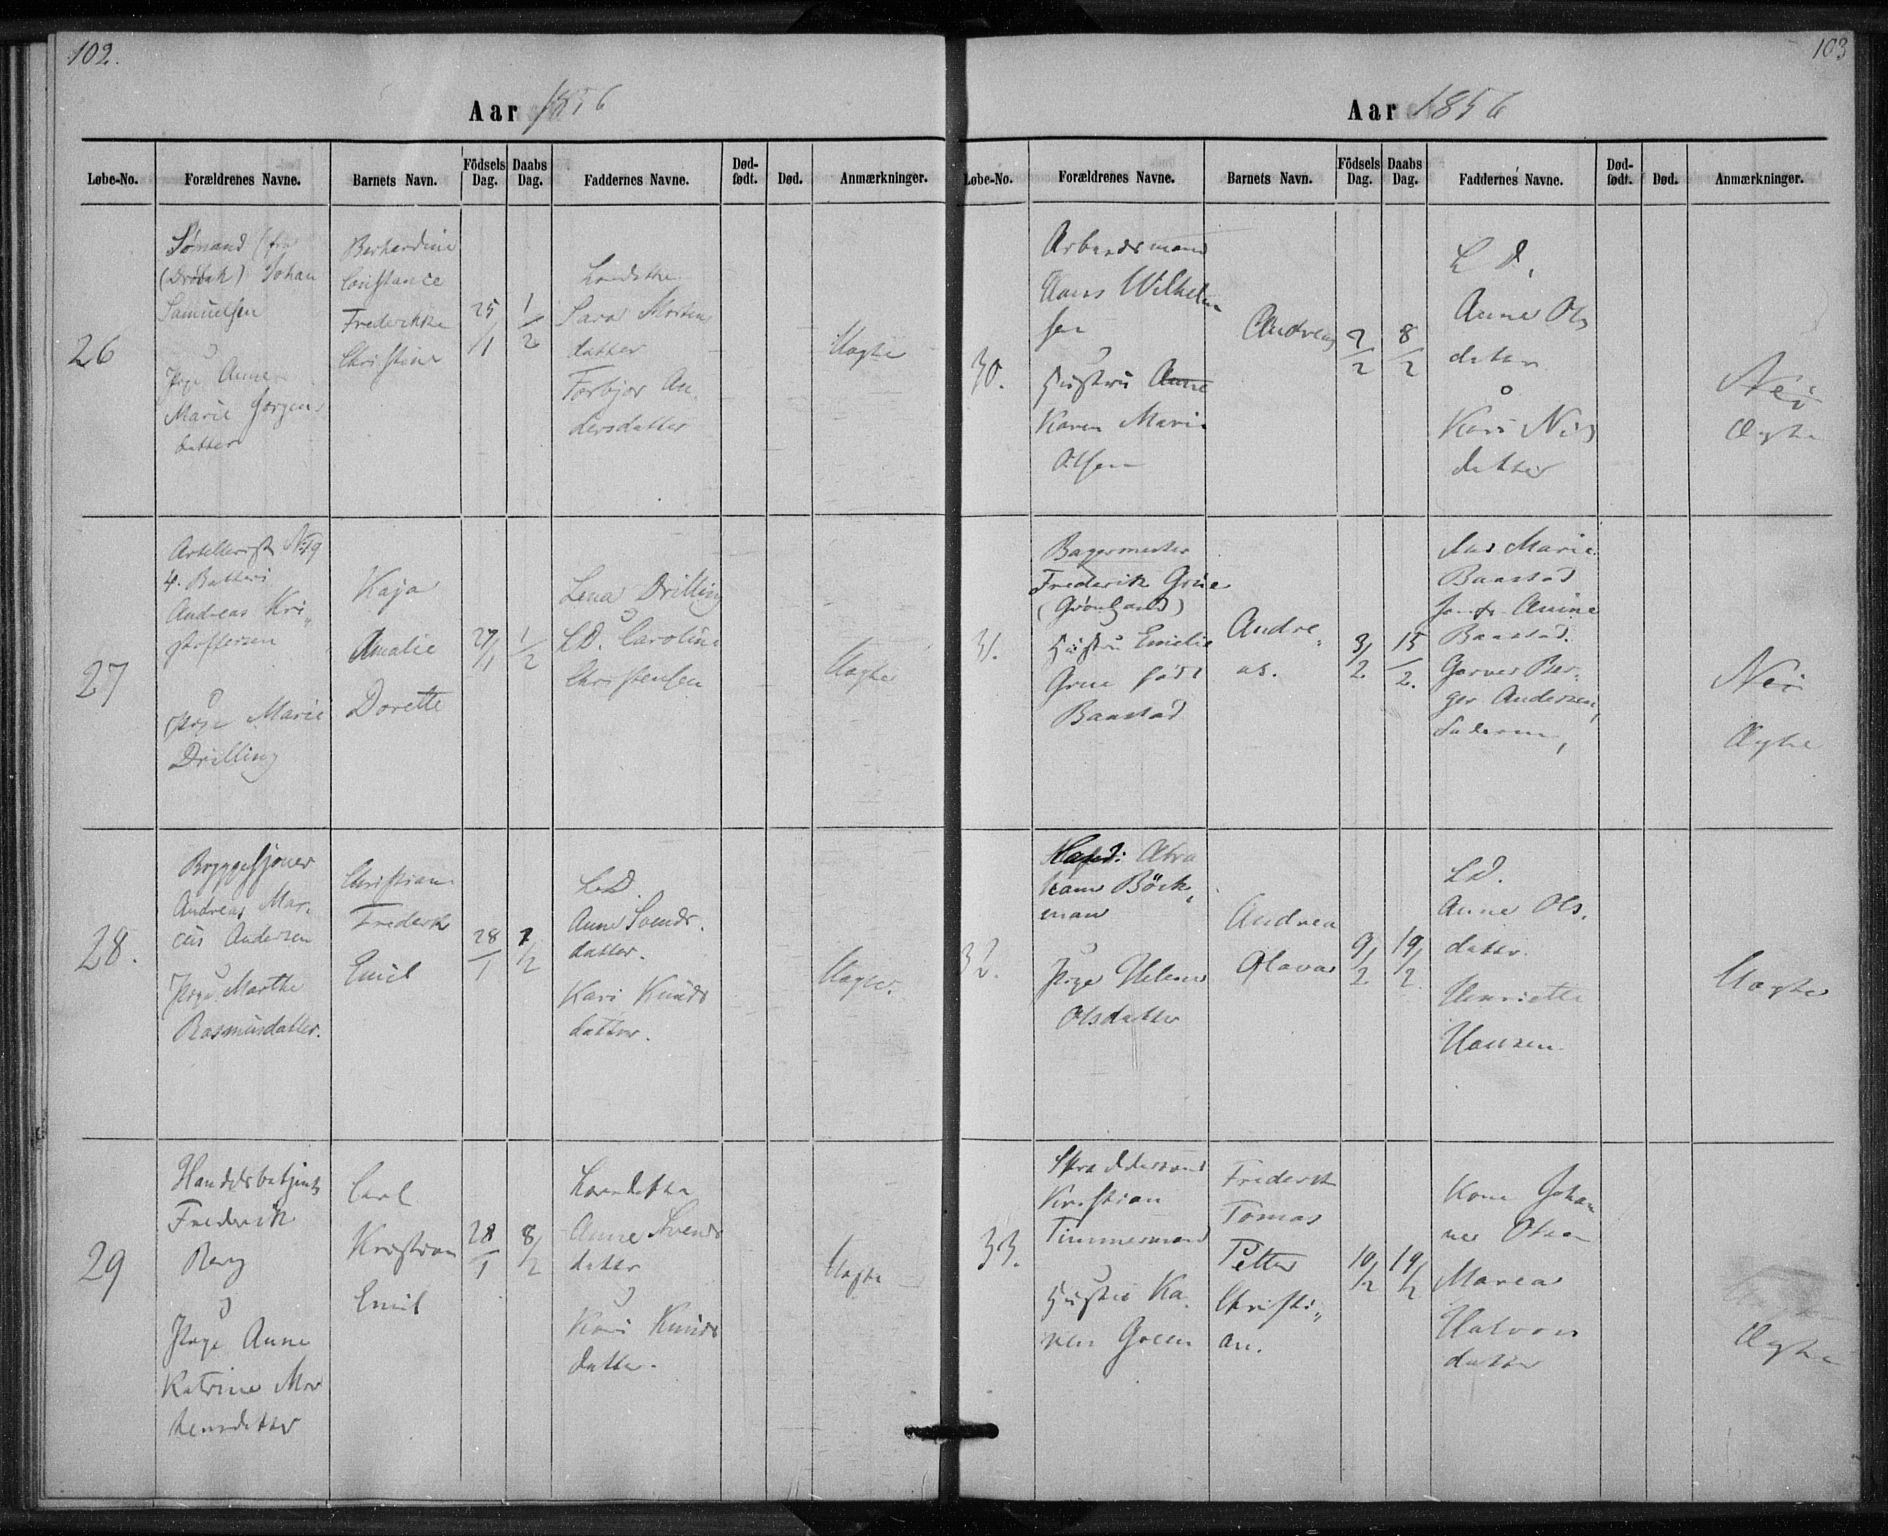 102.
Aar 1856
Løbe-No.
Forældrenes Navne.
Barnets Navn.
Födsels Dag.
Daabs Dag.
Faddernes Navne.
Død-født.
Død.
Anmærkninger.
26
Sømand (fra
(Drøbak) Johan
Samuelsen
Pige Anne
Marie Jørgens
datter
Berhardine
Constance
Frederikke
Christine
25/1
1/2
Sara Morten
datter
Torbjor An-
dersdatter
Uægte
27
Artillerist No 19
4. Batteri
Andreas Kri-
stoffersen
Pige Marie
Drilling
Kaja
Amalie
Dorette
27/1
1/2
Lena Drilling
LD. Caroline
Christensen
Uægte
28.
Andreas Mar-
cus Andersen
Pige Marthe
Rasmusdatter.
Christian
Frederik
Emil
28/1
1/2
LD.
Anne Svends-
datter.
Kari Knuds
datter.
Uægte.
29
Frederik
Berg
Pige Anne
Katrine Mor
tensdatter
Carl
Kristian
Emil
28/1
8/2
Anne Svends
datter
Kari Knuds
datter.
Uægte
103
Aar 1856
Løbe-No.
Forældrenes Navne.
Barnets Navn.
Födsels Dag.
Daabs Dag.
Faddernes Navne.
Død-født.
Død.
Anmærkninger.
30.
Arbeidsmand
Hans Wilhelm
sen
Hustru Anne
Karen Marie
Olsen
Andreas
2/2
8/2
L D.
Anne Ols
datter
Kari Nils
datter
Nei
Ægte
31.
Bagermester
Frederik Grüe
(Grønland)
Hustru Emelie
Grüe født
Baastad
Andre-
as.
3/2
15/2.
Marie
Baastad
Jomfr Anine
Baastad.
Garver Ber-
ger Andersen,
Faderen,
Nei
Ægte
32.
Abra
ham Böck-
man
Pige Helene
Olsdatter
Andrea
Olava
9/2
19/2
LD.
Anne Ols-
datter.
Henriette
Hansen
Uægte
33.
Skræddersvend
Kristian
Timmermand
Hustru Ka-
ren Green
Frederik
Tomas
Petter
Christi-
an.
10/2
19/2
Kone Johan
ne Olsen
Maren
Halvors
datter
Ægte